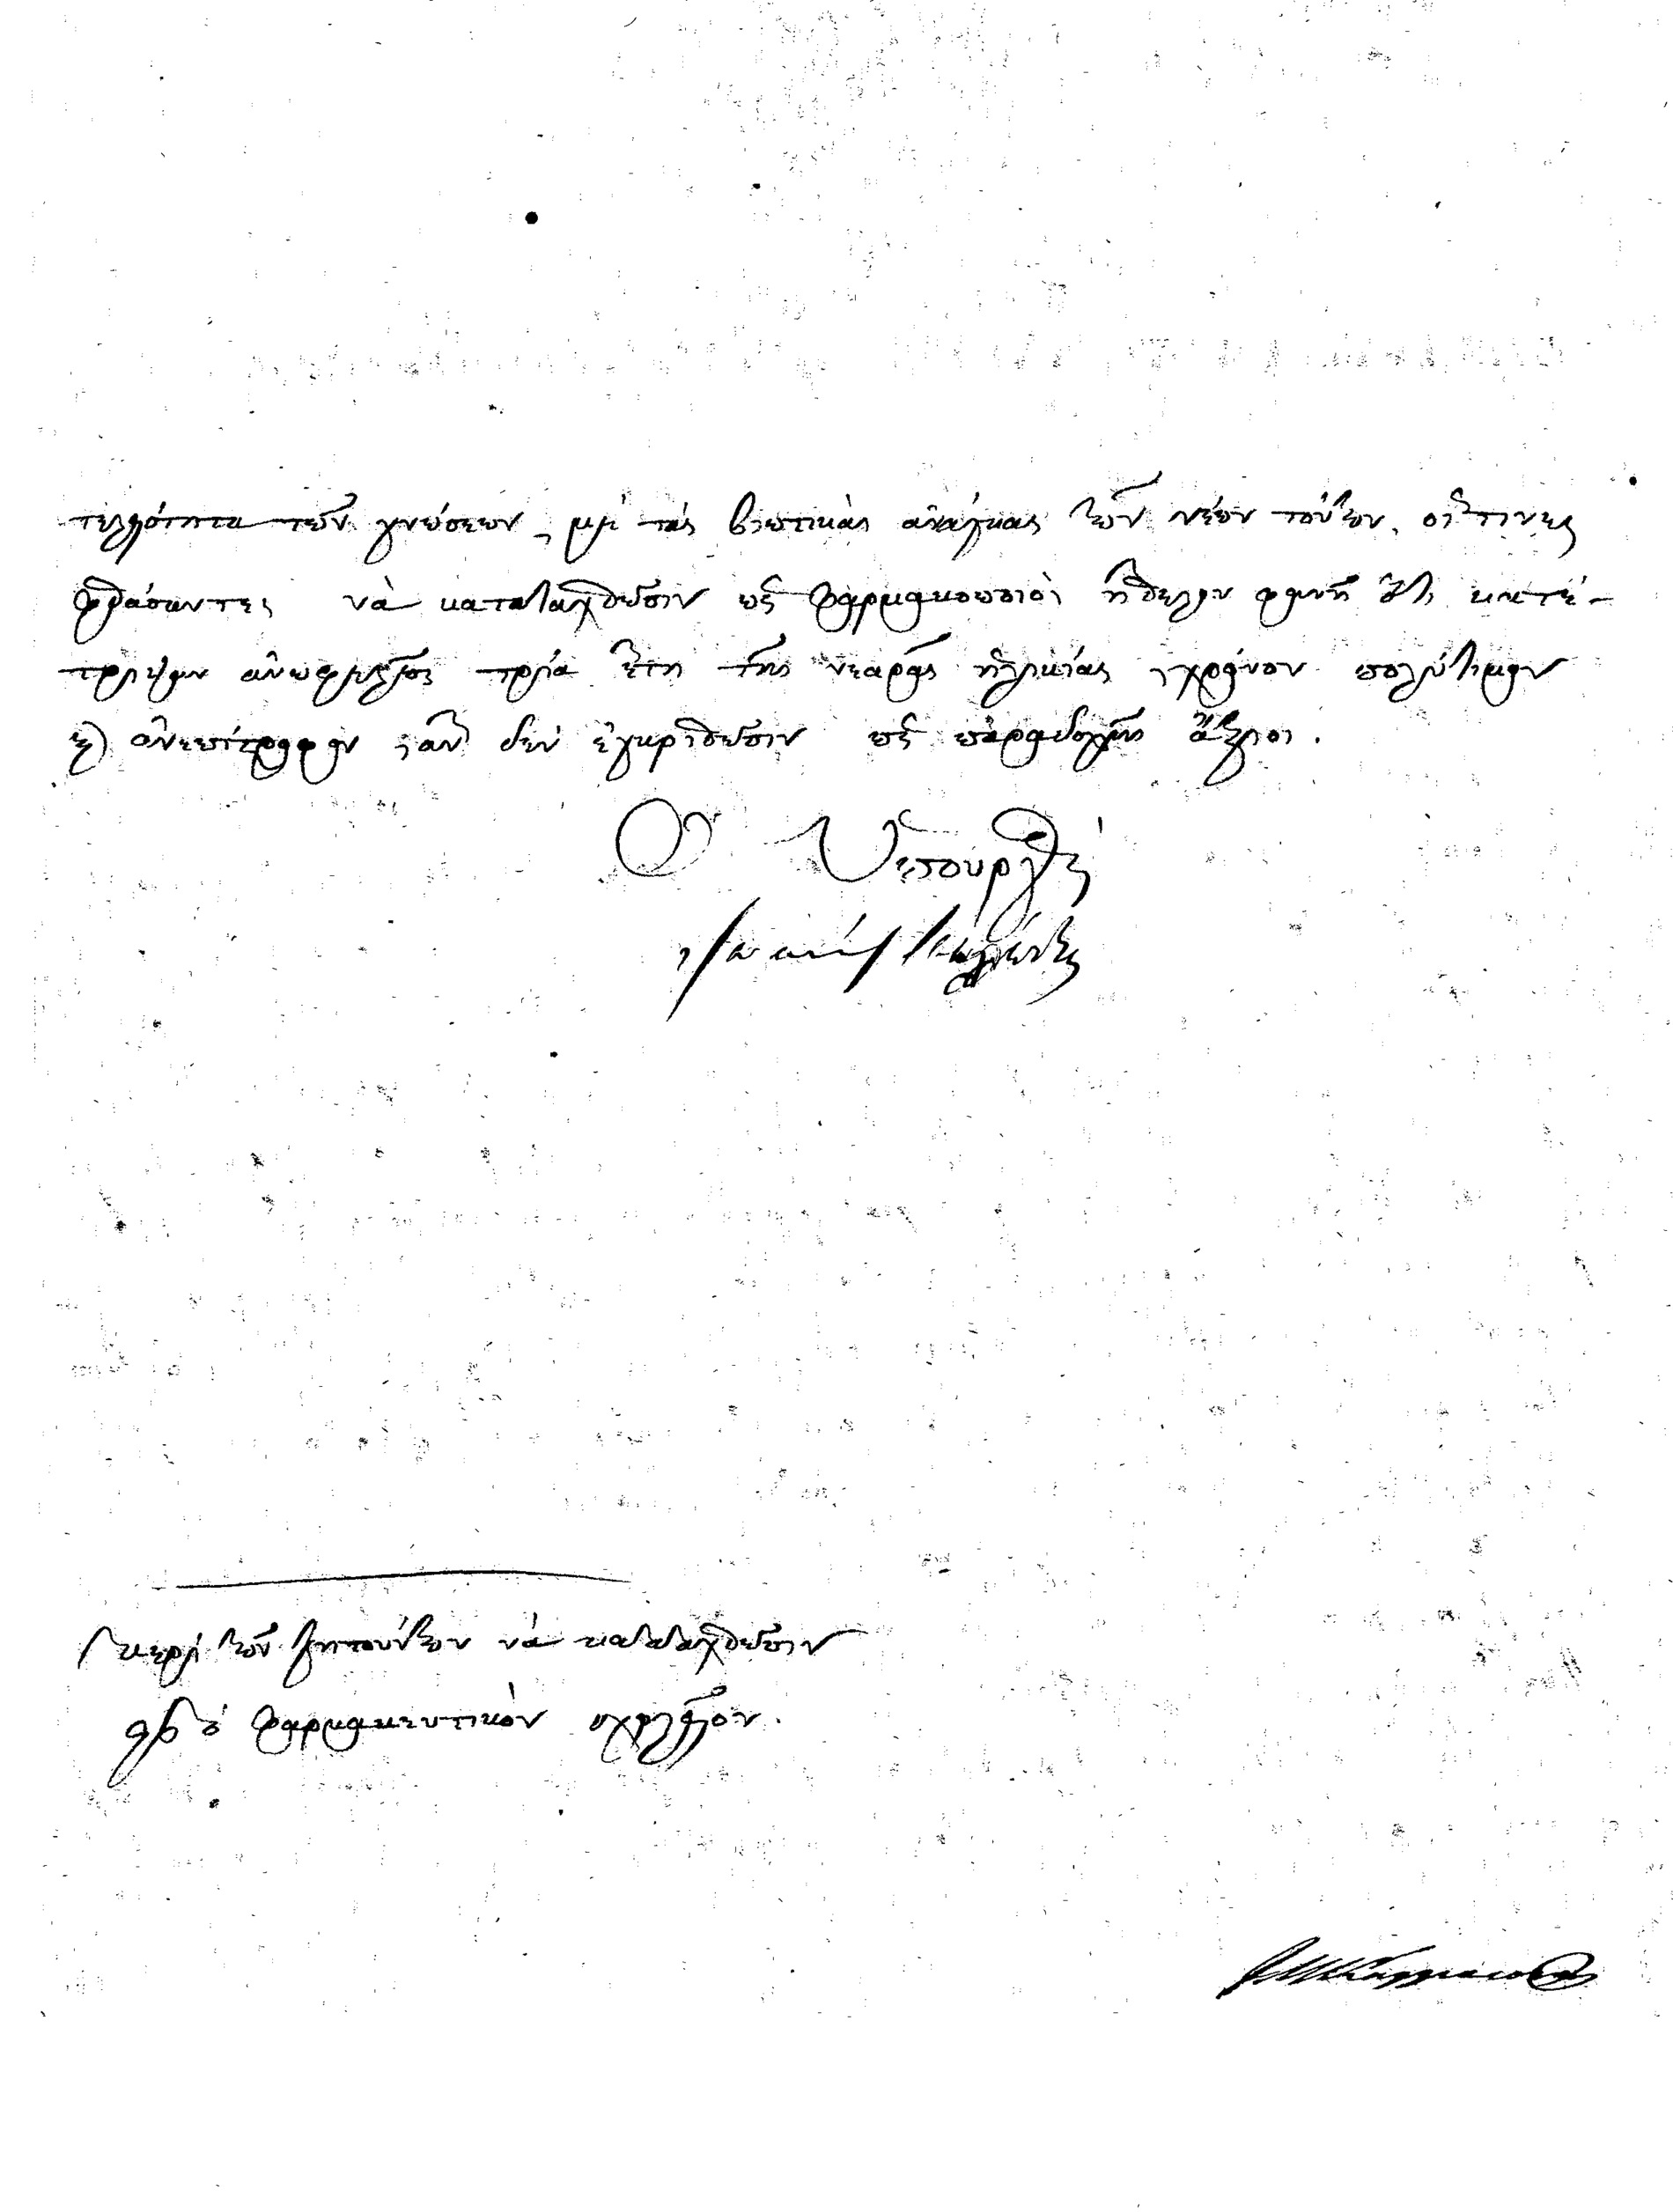 τελειότητα τῶν γνώσεων, μὲ τὰς βιωτικὰς ἀνάγκας τῶν νέων τούτων, οἵτινες
φθάσαντες νὰ καταταχθῶσιν ὡς φαρμακοποιοὶ ἤθελον φανῆ ὅτι κατέ-
τριψαν ἀνωφελῶς τρία ἔτη τῆς νεαρᾶς ἡλικίας, χρόνον πολύτιμον
κ) ἀνεπίστροφον, ἂν δὲν ἐγκριθῶσιν ὡς παραδοχῆς ἄξιοι.
Ὁ Ὑπουργὸς
περὶ τῶν ζητούντων νὰ καταταχθῶσιν
εἰς τὸ φαρμακευτικὸν σχολεῖον.